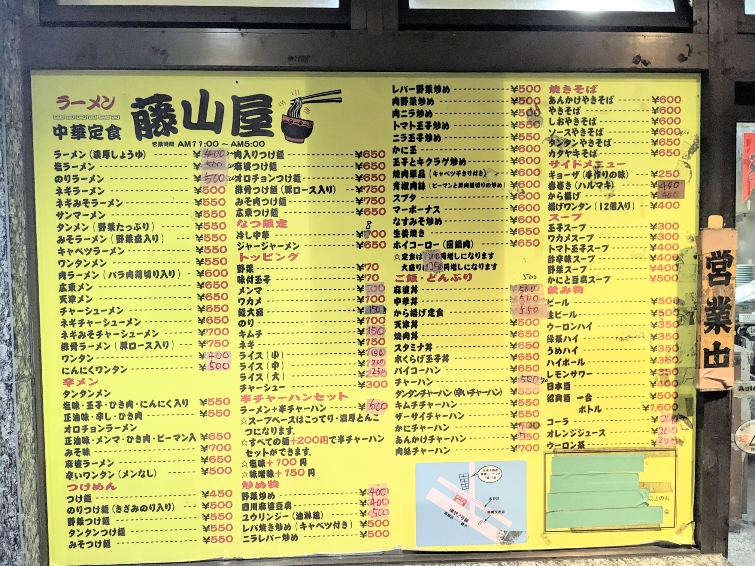 ラーメン
中華定食
藤山屋
営業時間 AM11:00～AM5:00
ラーメン（濃厚しょうゆ） ¥400
塩ラーメン ¥500
のりラーメン ¥500
ネギラーメン ¥500
ネギみそラーメン ¥550
サンマーメン ¥550
タンメン（野菜たっぷり） ¥550
みそラーメン（野菜盛入り） ¥550
キャベツラーメン ¥550
ワンタンメン ¥550
肉ラーメン（バラ肉薄切り入り） ¥600
広東メン ¥650
天津メン ¥650
チャーシューメン ¥650
ネギチャーシューメン ¥650
ネギみそチャーシューメン ¥700
排骨ラーメン（豚ロース入り） ¥750
ワンタン ¥400
にんにくワンタン ¥500
辛メン
タンタンメン
塩味・玉子・ひき肉・にんにく入り ¥550
正油味・辛し・ひき肉 ¥550
オロチョンラーメン
正油味・メンマ・ひき肉・ピーマン入 ¥650
みそ味 ¥700
麻婆ラーメン ¥650
辛いワンタン（メンなし） ¥500
つけめん
つけ麺 ¥450
のりつけ麺（きざみのり入り） ¥500
野菜つけ麺 ¥550
タンタンつけ麺 ¥550
みそつけ麺 ¥550
肉入りつけ麺 ¥650
麻婆つけ麺 ¥650
オロチョンつけ麺 ¥650
排骨つけ麺（豚ロース入り） ¥750
みそ肉つけ麺 ¥750
広東つけ麺 ¥650
なつ限定
冷し中華 ¥700
ジャージャーメン ¥650
トッピング
野菜 ¥70
味付玉子 ¥70
メンマ
ワカメ ¥100
麺大盛 ¥150
のり ¥100
キムチ ¥150
ネギ ¥150
ライス（小）
ライス（中） ¥200
ライス（大） ¥250
チャーシュー ¥300
半チャーハンセット
ラーメン+半チャーハン
☆スープベースはこってり・濃厚とんこ
つになります。
☆すべての麺+200円で半チャーハン
セットができます。
☆塩味+100円
☆味噌味+150円
炒め物
野菜炒め ¥400
四川麻婆豆腐 ¥400
ユウリンジー（油淋鶏） ¥500
レバ焼き炒め（キャベツ付き） ¥500
ニラレバー炒め ¥500
レバー野菜炒め ¥500
肉野菜炒め ¥500
肉ニラ炒め ¥550
トマト玉子炒め ¥550
ニラ玉子炒め ¥550
かに玉 ¥600
玉子とキクラゲ炒め ¥600
焼肉単品（キャベツ千きり付き） ¥600
青椒肉絲（ピーマンと豚肉細切りの炒め） ¥600
スブタ ¥600
マーボーナス ¥600
なすみそ炒め ¥650
生姜焼き ¥650
ホイコーロー（回鍋肉） ¥650
ご飯・どんぶり 500
麻婆丼 500
中華丼 500
から揚げ定食 550
天津丼 ¥500
焼肉丼 ¥650
スタミナ丼 ¥650
木くらげ玉子丼 ¥650
パイコーハン ¥650
チャーハン 500
タンタンチャーハン（辛いチャーハン） ¥550
キムチチャーハン ¥550
ザーサイチャーハン ¥550
かにチャーハン
あんかけチャーハン ¥650
肉絲チャーハン ¥700
焼きそば
あんかけやきそば ¥600
やきそば ¥600
しおやきそば ¥600
ソースやきそば ¥600
タンタンやきそば ¥650
カタヤキそば ¥650
サイドメニュー
ギョーザ（手作りの味） ¥250
春巻き（ハルマキ）
から揚げ
揚げワンタン（12個入り） ¥400
スープ
玉子スープ ¥300
ワカメスープ ¥300
トマト玉子スープ ¥400
酢辛味スープ ¥400
野菜スープ ¥400
かにと豆腐スープ ¥500
飲み物
ビール ¥500
生ビール ¥500
ウーロンハイ ¥350
緑茶ハイ ¥350
うめハイ ¥350
ハイボール ¥350
レモンサワー
日本酒
紹興酒 一合
ボトル ¥1,600
コーラ
オレンジジュース
ウーロン茶
営業中